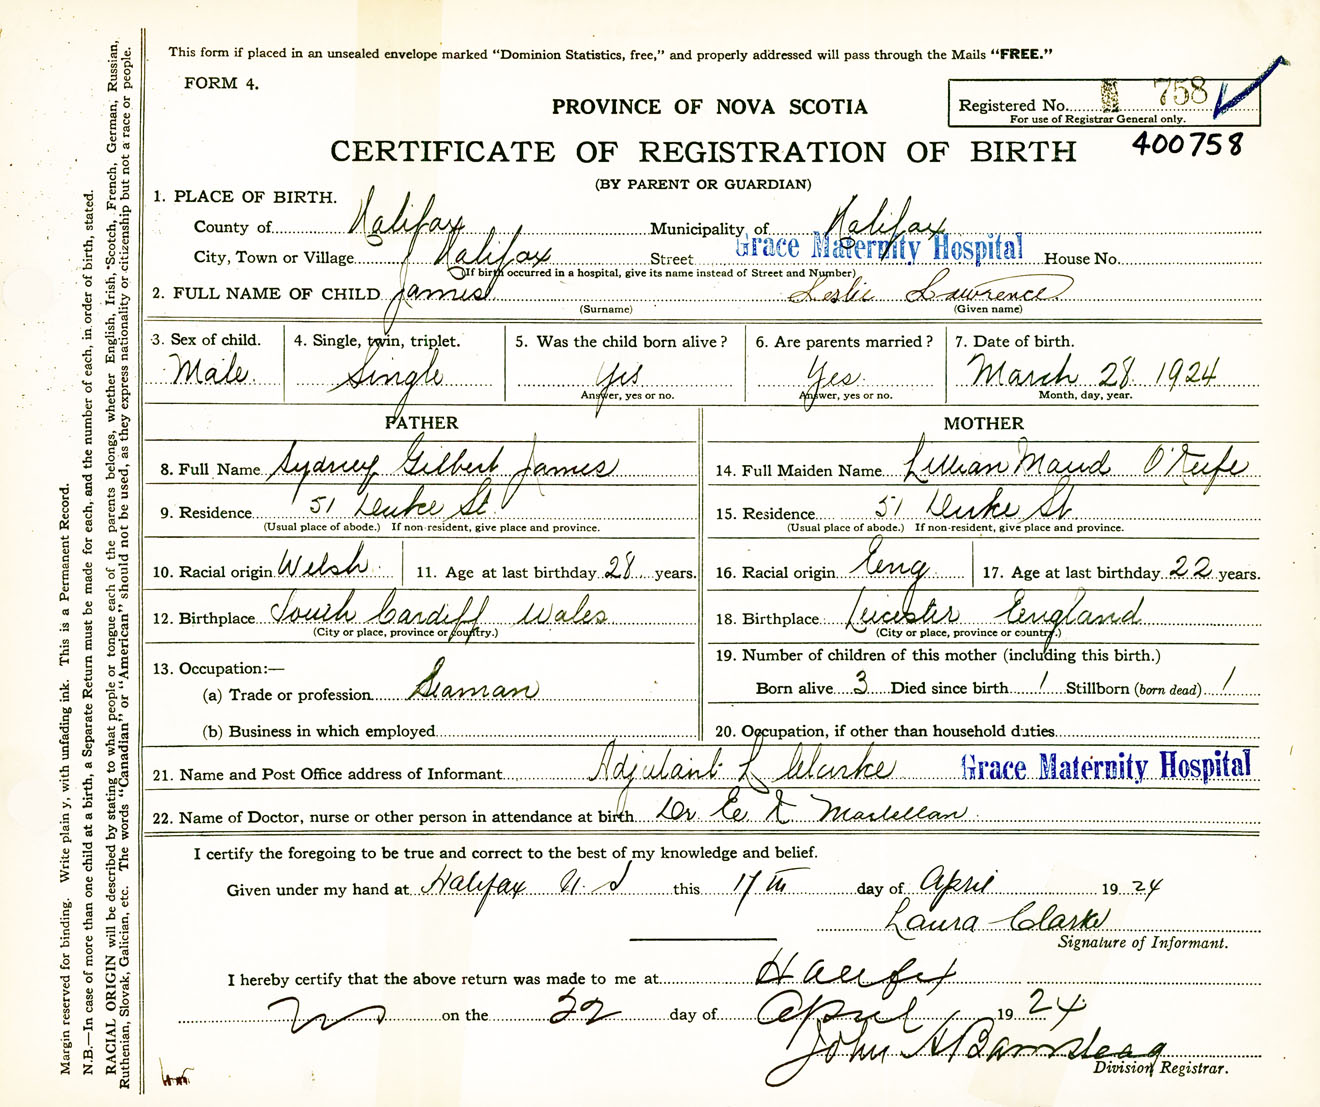 This form if placed in an unsealed envelope marked “Dominion Statistics, free,” and properly addressed will pass through the Mails “FREE.”
FORM 4.
Registered No. 758
For use of Registrar General only.
PROVINCE OF NOVA SCOTIA
400758
CERTIFICATE OF REGISTRATION OF BIRTH
(BY PARENT OR GUARDIAN)
1. PLACE OF BIRTH.
County of Halifax Municipality of Halifax
City, Town or Village Halifax Street Grace Maternity Hospital House No.
(If birth occurred in a hospital, give its name instead of Street and Number)
2. FULL NAME OF CHILD James Leslie Lawrence
(Surname) (Given name)
3. Sex of child. 4. Single, twin, triplet. 5. Was the child born alive? 6. Are parents married? 7. Date of birth.
Male Single Yes Yes March 28 1924
Answer, yes or no. Answer, yes or no. Month, day, year.
FATHER MOTHER
8. Full Name Sydney Gilbert James 14. Full Maiden Name Lillian Maud O'Keefe
9. Residence 51 Duke St 15. Residence 51 Duke St
(Usual place of abode.) If non-resident, give place and province. (Usual place of abode.) If non-resident, give place and province.
10. Racial origin Welsh 11. Age at last birthday 28 years. 16. Racial origin Eng 17. Age at last birthday 22 years.
12. Birthplace South Cardiff Wales 18. Birthplace Leicester England
(City or place, province or country.) (City or place, province or country.)
13. Occupation:— 19. Number of children of this mother (including this birth.)
(a) Trade or profession Seaman Born alive 3 Died since birth 1 Stillborn (born dead) 1
(b) Business in which employed 20. Occupation, if other than household duties
21. Name and Post Office address of Informant Adjutant L Clarke Grace Maternity Hospital
22. Name of Doctor, nurse or other person in attendance at birth Dr E. Maclellan
I certify the foregoing to be true and correct to the best of my knowledge and belief.
Given under my hand at Halifax N.S this 17th day of April 1924
Laura Clarke
Signature of Informant.
I hereby certify that the above return was made to me at Halifax
NS on the 22 day of April 1924
John H
Division Registrar.
Margin reserved for binding. Write plainly, with unfading ink. This is a Permanent Record.
N.B.—In case of more than one child at a birth, a Separate Return must be made for each, and the number of each, in order of birth, stated.
RACIAL ORIGIN will be described by stating to what people or tongue each of the parents belongs, whether English, Irish, Scotch, French, German, Russian,
Ruthenian, Slovak, Galician, etc. The words “Canadian” or “American” should not be used, as they express nationality or citizenship but not a race or people.